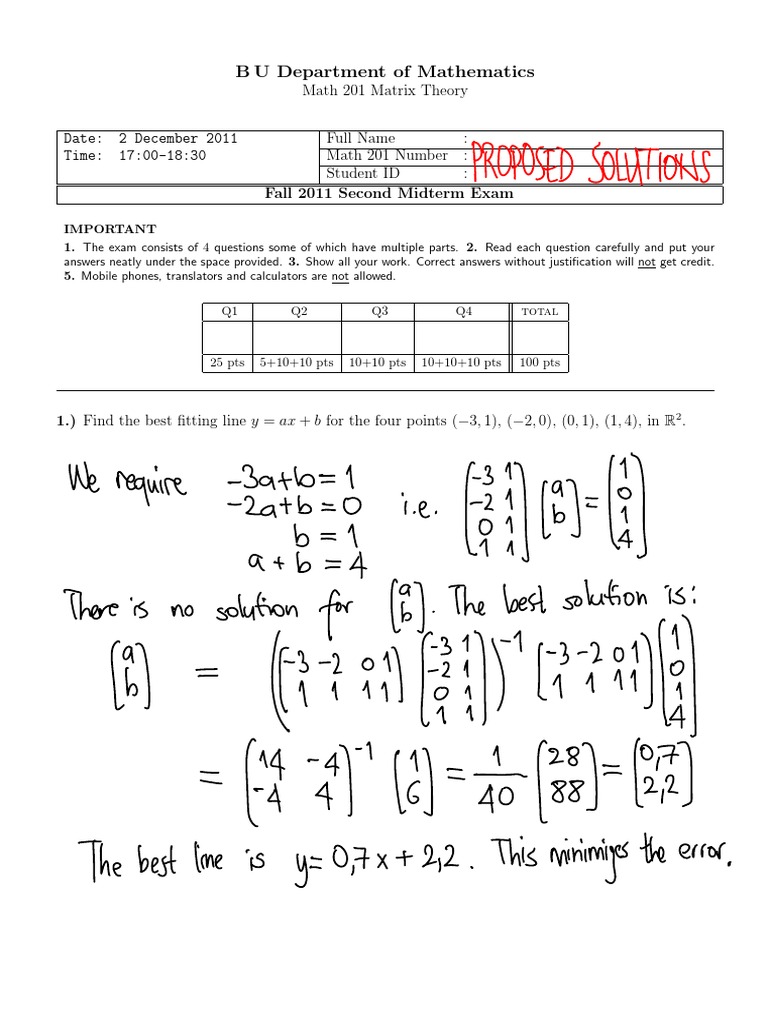 B U Department of Mathematics
Math 201 Matrix Theory
Date: 2 December 2011
Time: 17:00-18:30
Full Name :
Math 201 Number :
Student ID :
PROPOSED SOLUTIONS
Fall 2011 Second Midterm Exam
IMPORTANT
1. The exam consists of 4 questions some of which have multiple parts. 2. Read each question carefully and put your
answers neatly under the space provided. 3. Show all your work. Correct answers without justification will not get credit.
5. Mobile phones, translators and calculators are not allowed.
Q1 Q2 Q3 Q4 TOTAL
25 pts 5+10+10 pts 10+10 pts 10+10+10 pts 100 pts
1.) Find the best fitting line y = ax + b for the four points (−3, 1), (−2, 0), (0, 1), (1, 4), in ℝ².
We require -3a+b=1
-2a+b=0
b=1
a+b=4
i.e. (-3 1; -2 1; 0 1; 1 1) (a; b) = (1; 0; 1; 4)
There is no solution for (a; b). The best solution is:
(a; b) = ((-3 -2 0 1; 1 1 1 1) (-3 1; -2 1; 0 1; 1 1))⁻¹ (-3 -2 0 1; 1 1 1 1) (1; 0; 1; 4)
= (14 -4; -4 4)⁻¹ (1; 6) = 1/40 (28; 88) = (0,7; 2,2)
The best line is y=0,7x+2,2. This minimizes the error.